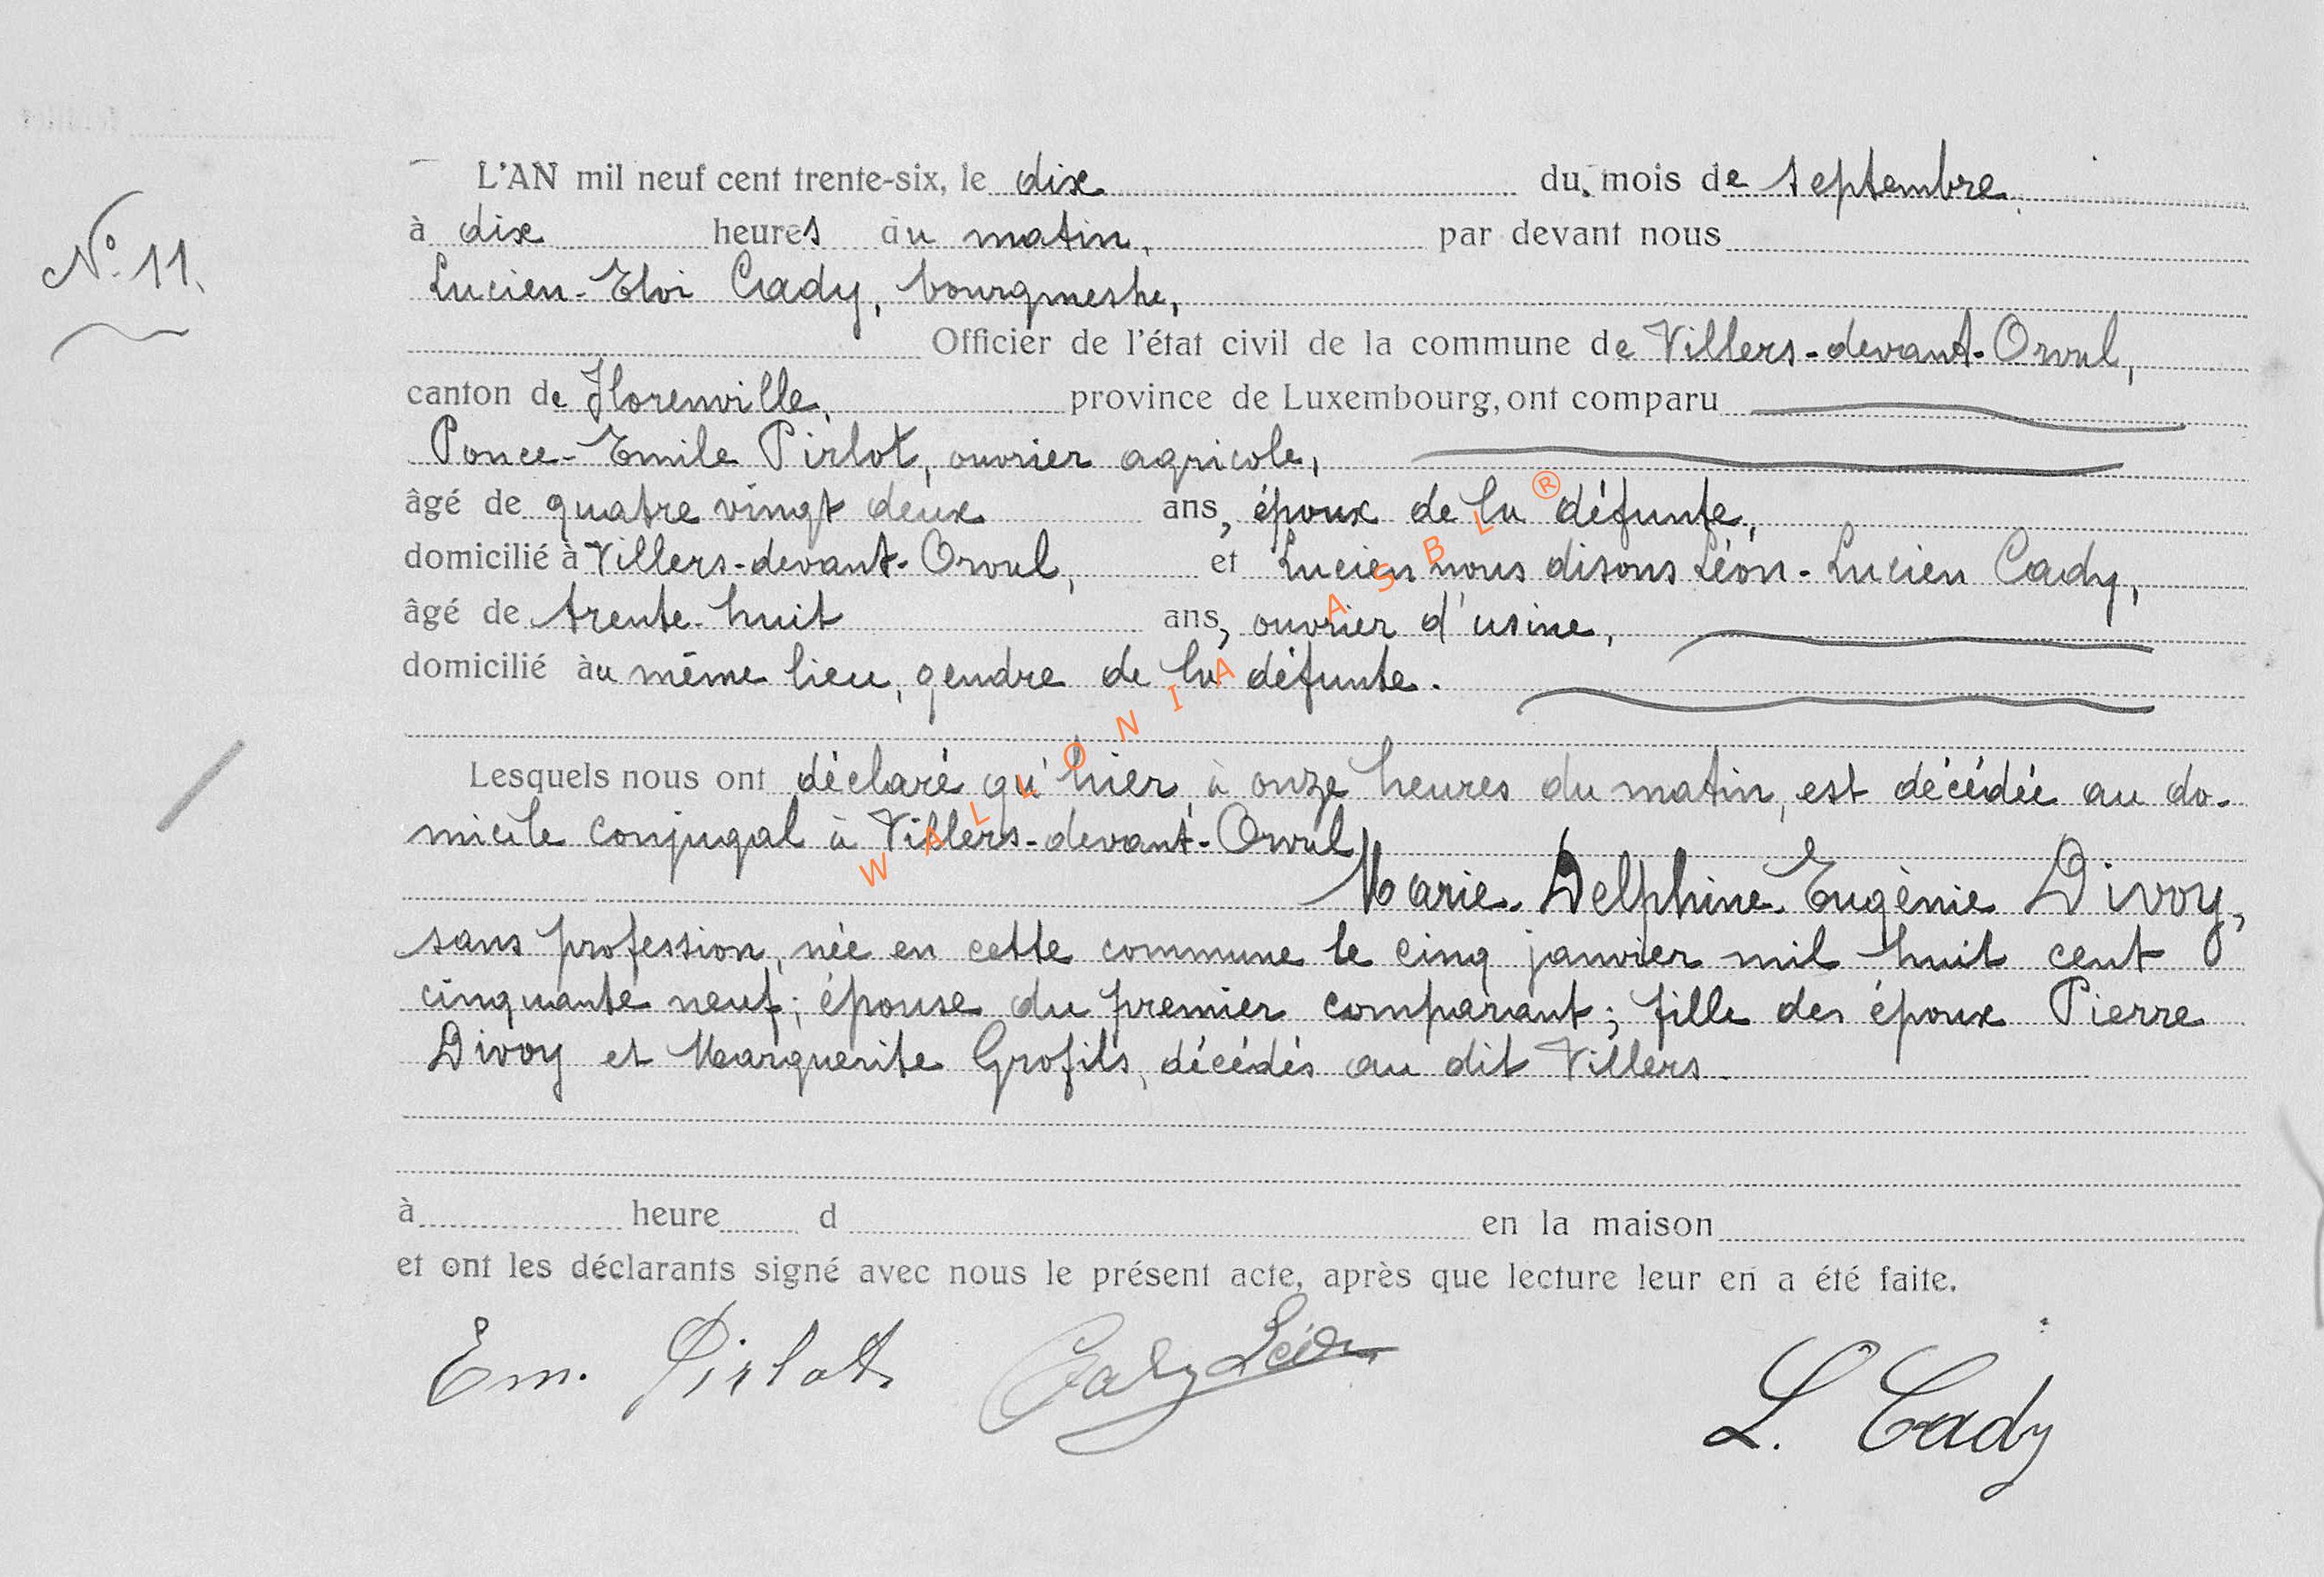 N° 11.
L'AN mil neuf cent trente-six, le dix du mois de septembre,
à dix heures du matin, par devant nous
Lucien-Eloi Cady, bourgmestre,
Officier de l'état civil de la commune de Villers-devant-Orval,
canton de Florenville, province de Luxembourg, ont comparu
Ponce-Emile Pirlot, ouvrier agricole,
âgé de quatre vingt deux ans, époux de la défunte,
domicilié à Villers-devant-Orval, et Lucien nous disons Léon-Lucien Cady,
âgé de trente-huit ans, ouvrier d'usine,
domicilié au même lieu, gendre de la défunte.
Lesquels nous ont déclaré qu'hier, à onze heures du matin, est décédée au do-
micile conjugal à Villers-devant-Orval
Marie-Delphine-Eugènie Divoy,
sans profession, née en cette commune le cinq janvier mil huit cent
cinquante neuf; épouse du premier comparant; fille des époux Pierre
Divoy et Marguerite Grofils, décédés au dit Villers.
à heure d en la maison
et ont les déclarants signé avec nous le présent acte, après que lecture leur en a été faite.
Em. Pirlot Cady Léon L. Cady
WALLONIA ASBL ®